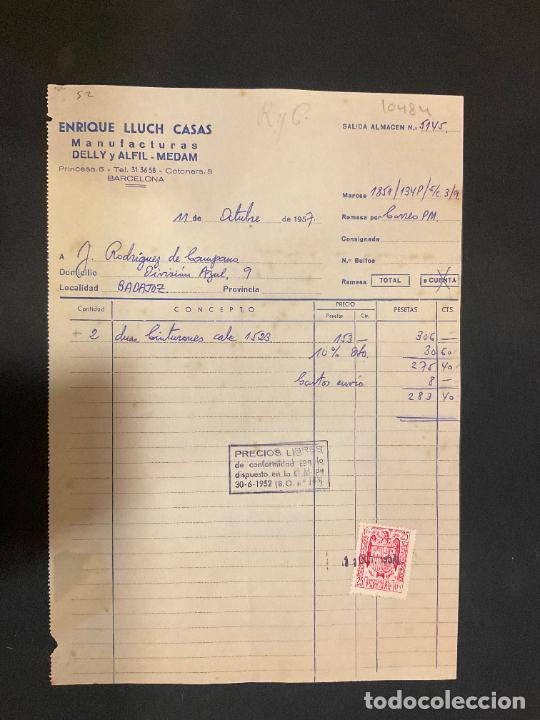 52
R y C.
10484
ENRIQUE LLUCH CASAS
Manufacturas
DELLY y ALFIL - MEDAM
Princesa, 6 - Tel. 31 36 58 - Cotoners, 8
BARCELONA
SALIDA ALMACEN N.º 5145.
Marcas 1851/134P/5/c 3/9
11 de Octubre de 1957
Remesa por Correo PM.
Consignada
A J. Rodríguez de Campano
N.º Bultos
Domicilio División Azul, 9
Localidad BADAJOZ. Provincia
Remesa TOTAL a CUENTA
Cantidad CONCEPTO PRECIO Pesetas Cts. PESETAS CTS.
2 dos Cinturones cab. 1523 153 — 306 —
10% dto. 30 60
275 40
Gastos envío 8 —
283 40
PRECIOS LIBRES
de conformidad con lo
dispuesto en la O. M. de
30-6-1952 (B. O. nº
25
25
todocoleccion
todocoleccion.net